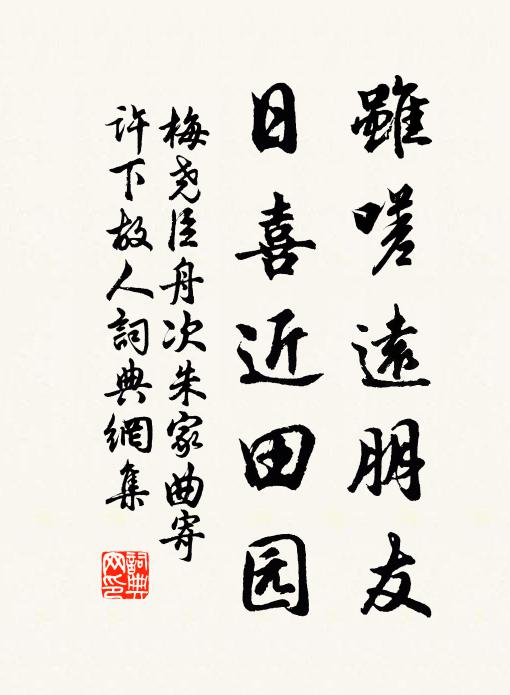 雖嗟遠朋友
日喜近田园
梅尧臣舟次朱家曲寄
許下故人詞典網集
詞典網印